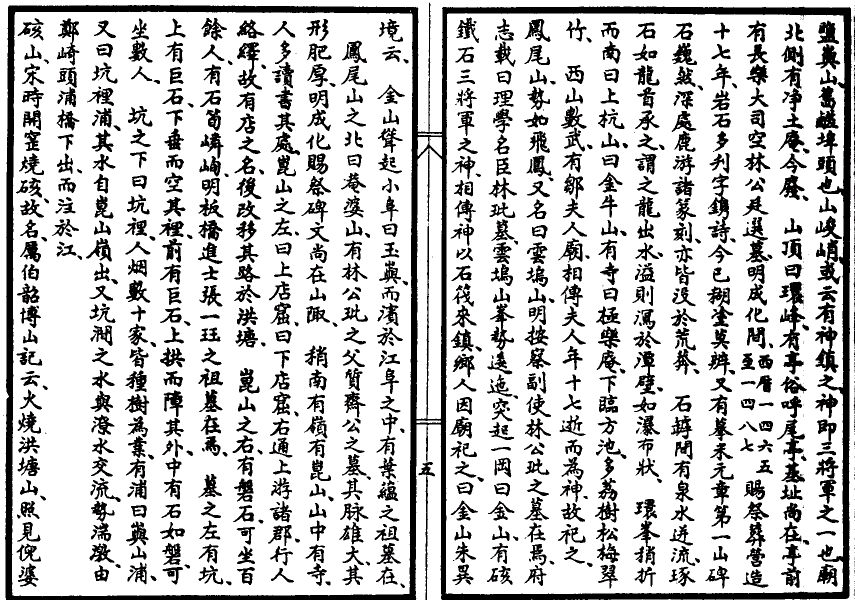 鹽㠘山舊鹺埠頭也山峻峭或云有神鎮之神即三將軍之一也廟
北側有淨土庵今廢　山頂曰環峰有亭俗呼尾亭墓址尚在亭前
有長樂大司空林公廷選墓明成化間西曆一四六五至一四八七賜祭葬營造
十七年岩石多刋字鐫詩今已糊塗莫辨又有摹米元章第一山碑
石巍然深處鹿游諸篆刻亦皆没於荒莽　石罅間有泉水迸流琢
石如龍首承之謂之龍出水溢則瀉於潭壁如瀑布狀　環峯稍折
而南曰上杭山曰金牛山有寺曰極樂庵下臨方池多荔樹松梅翠
竹　西山數武有鄒夫人廟相傳夫人年十七逝而為神故祀之
鳳尾山勢如飛鳳又名曰雲塢山明按察副使林公玭之墓在焉府
志載曰理學名臣林玭墓雲塢山峯勢逶迤突起一岡曰金山有硋
鐵石三將軍之神相傳神以石筏來鎮鄉人因廟祀之曰金山朱異
五
境云　金山聳起小阜曰玉㠘而濱於江阜之中有葉蘊之祖墓在
鳳尾山之北曰菴婆山有林公玭之父質齋公之墓其脉雄大其
形肥厚明成化賜祭碑文尚在山陬　稍南有嶺有崑山山中有寺
人多讀書其處崑山之左曰上店窟曰下店窟右通上游諸郡行人
絡繹故有店之名後改移其路於洪塘　崑山之右有磐石可坐百
餘人有石筍嶙峋明板橋進士張一珏之祖墓在焉　墓之左有坑
上有巨石下垂而空其裡前有巨石上拱而障其外中有石如磐可
坐數人　坑之下曰坑裡人烟數十家皆種樹為業有浦曰㠘山浦
又曰坑裡浦其水自崑山嶺出又坑澗之水與潦水交流勢湍激由
鄭崎頭浦橋下出而注於江
硋山宋時開窰燒硋故名厲伯韶博山記云火燒洪塘山照見倪婆